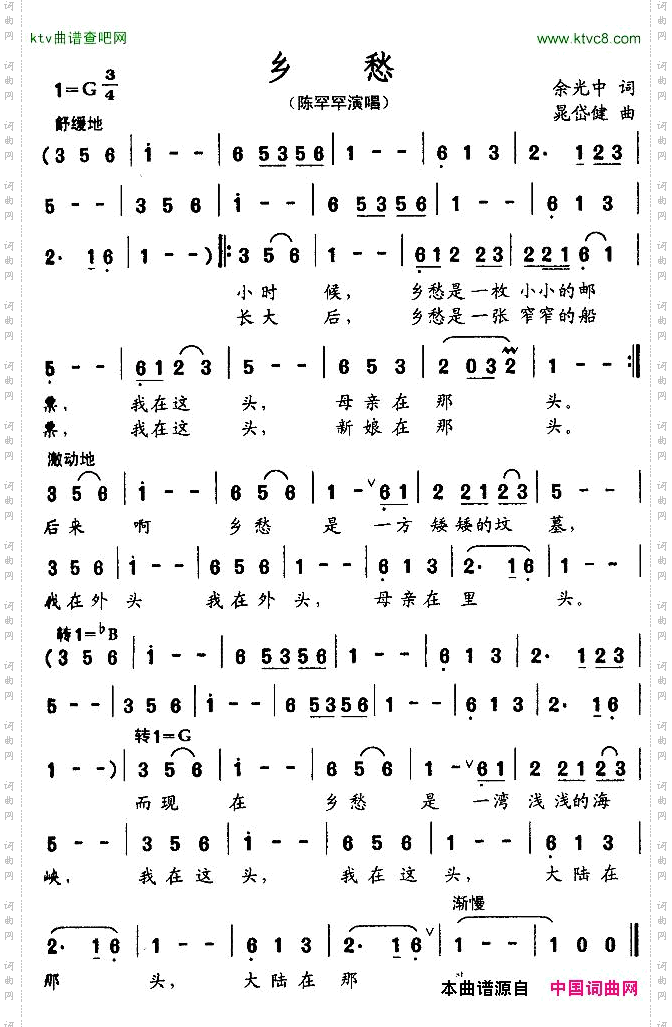 ktv曲谱查吧网 www.ktvc8.com
乡 愁
1=G 3/4 (陈罕罕演唱) 余光中 词
晁岱健 曲
舒缓地
(3 5 6 | i - - | 6 5356 | 1 - - | 6 1 3 | 2· 123
5 - - | 3 5 6 | i - - | 6 5356 | 1 - - | 6 1 3
2· 16 | 1 - -) ‖: 3 5 6 | 1 - - | 612 23 | 2 2216 1
小时 候， 乡愁是一枚 小小的邮
长大 后， 乡愁是一张 窄窄的船
5 - - | 612 3 | 5 - - | 6 5 3 | 2 032 | 1 - - :‖
票， 我在这 头， 母亲在 那 头。
票， 我在这 头， 新娘在 那 头。
激动地
3 5 6 | i - - | 6 5 6 | 1 - ∨61 | 2 2123 | 5 - -
后来 啊 乡愁 是 一方 矮矮的坟 墓，
3 5 6 | i - - | 6 5 6 | 1 - - | 6 1 3 | 2· 16 | 1 - -
我在外 头 我在外 头， 母亲在 里 头。
转1=♭B
(3 5 6 | i - - | 6 5356 | 1 - - | 6 1 3 | 2· 123
5 - - | 3 5 6 | i - - | 6 5356 | 1 - - | 6 1 3 | 2· 16
转1=G
1 - -) | 3 5 6 | i - - | 6 5 6 | 1 - ∨61 | 2 2123
而现 在 乡愁 是 一湾 浅浅的海
5 - - | 3 5 6 | i - - | 6 5 6 | 1 - - | 6 1 3
峡， 我在这 头， 我在这 头， 大陆在
渐慢
2· 16 | 1 - - | 6 1 3 | 2· 16 ∨ | 1 - - | 1 0 0 ‖
那 头， 大陆在 那
本曲谱源自 中国词曲网